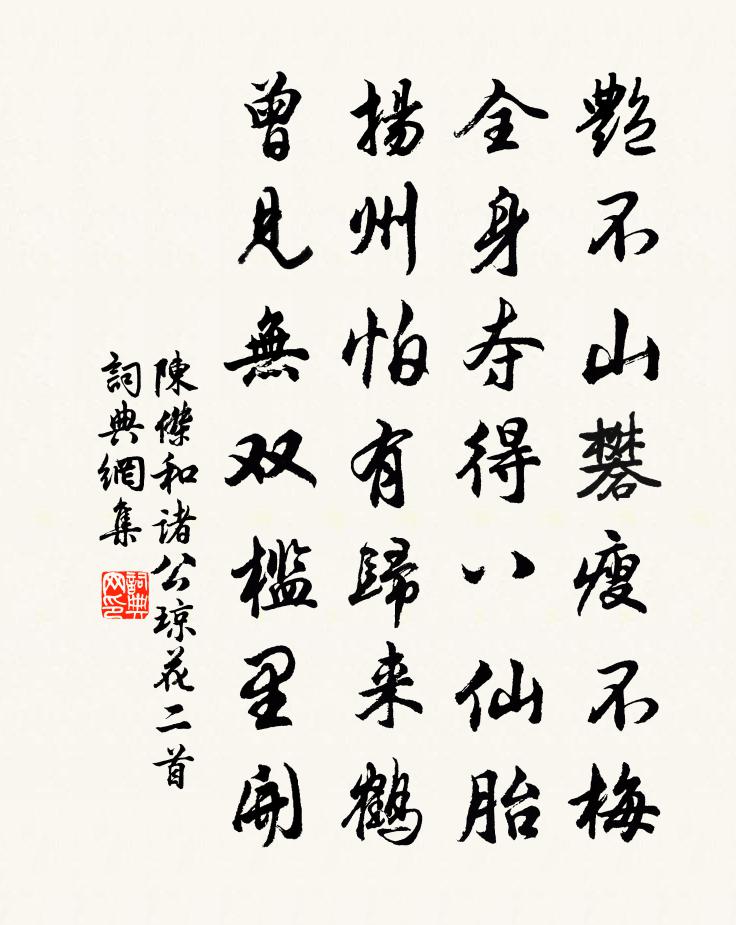 艷不山礬瘦不梅
全身夺得八仙胎
揚州怕有歸来鶴
曾見無双檻里開
陳傑和諸公琼花二首
詞典網集
詞典网印